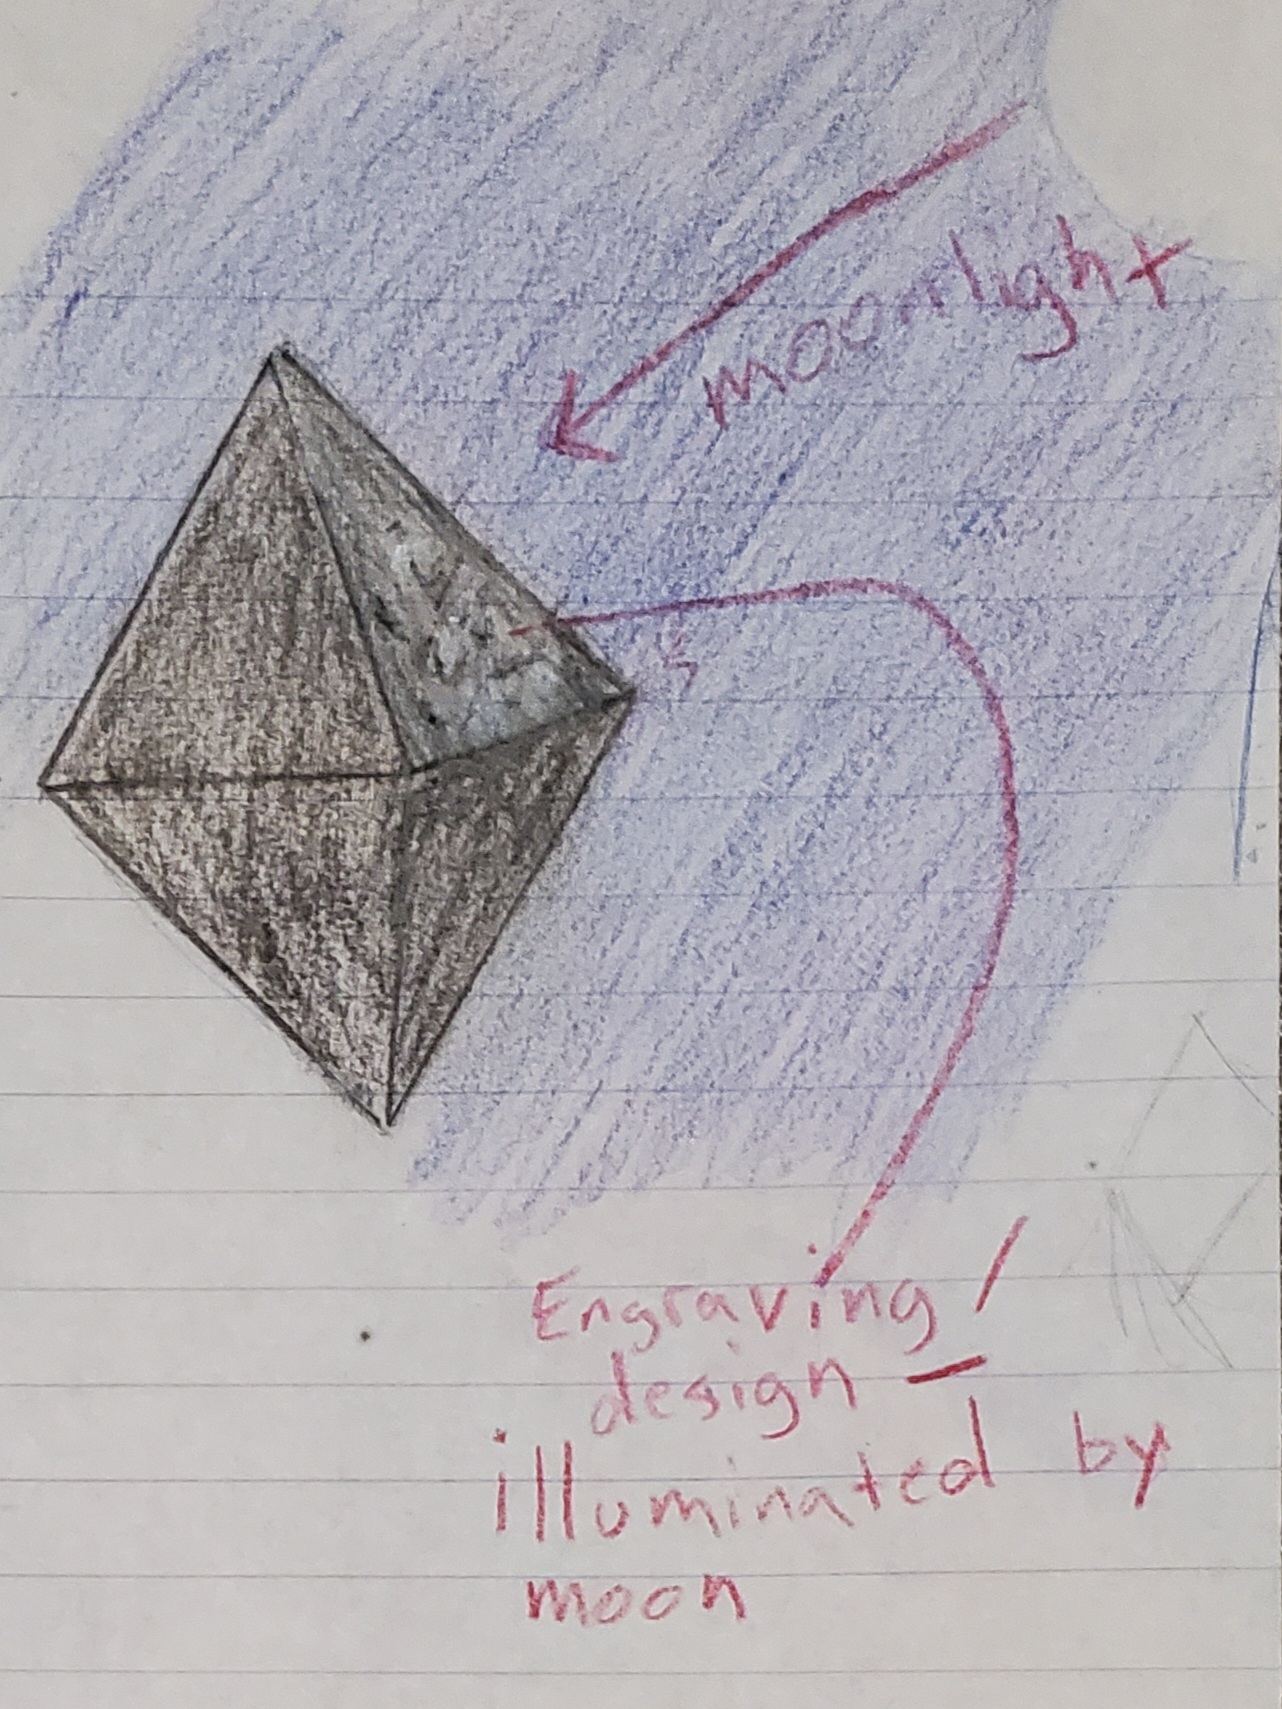 moonlight
Engraving /
design –
illuminated by
moon